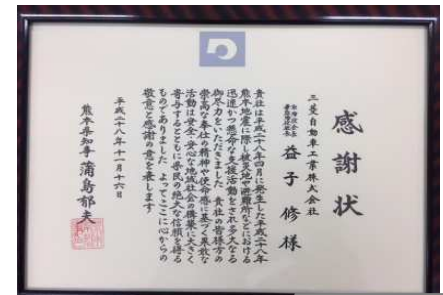 感謝状
三菱自動車工業株式会社
益子 修 様
貴社は平成二十八年四月に発生した平成二十八年
熊本地震に際し被災地や避難所などにおける
迅速かつ懸命な支援活動をされ多大なる
御尽力をいただきました 貴社の皆様方の
崇高な奉仕の精神や使命感に基づく果敢な
活動は安全・安心な地域社会の構築に大きく
寄与するとともに県民の絶大な信頼を得る
ものでありました よってここに心からの
敬意と感謝の意を表します
平成二十八年十一月十六日
熊本県知事 蒲島郁夫